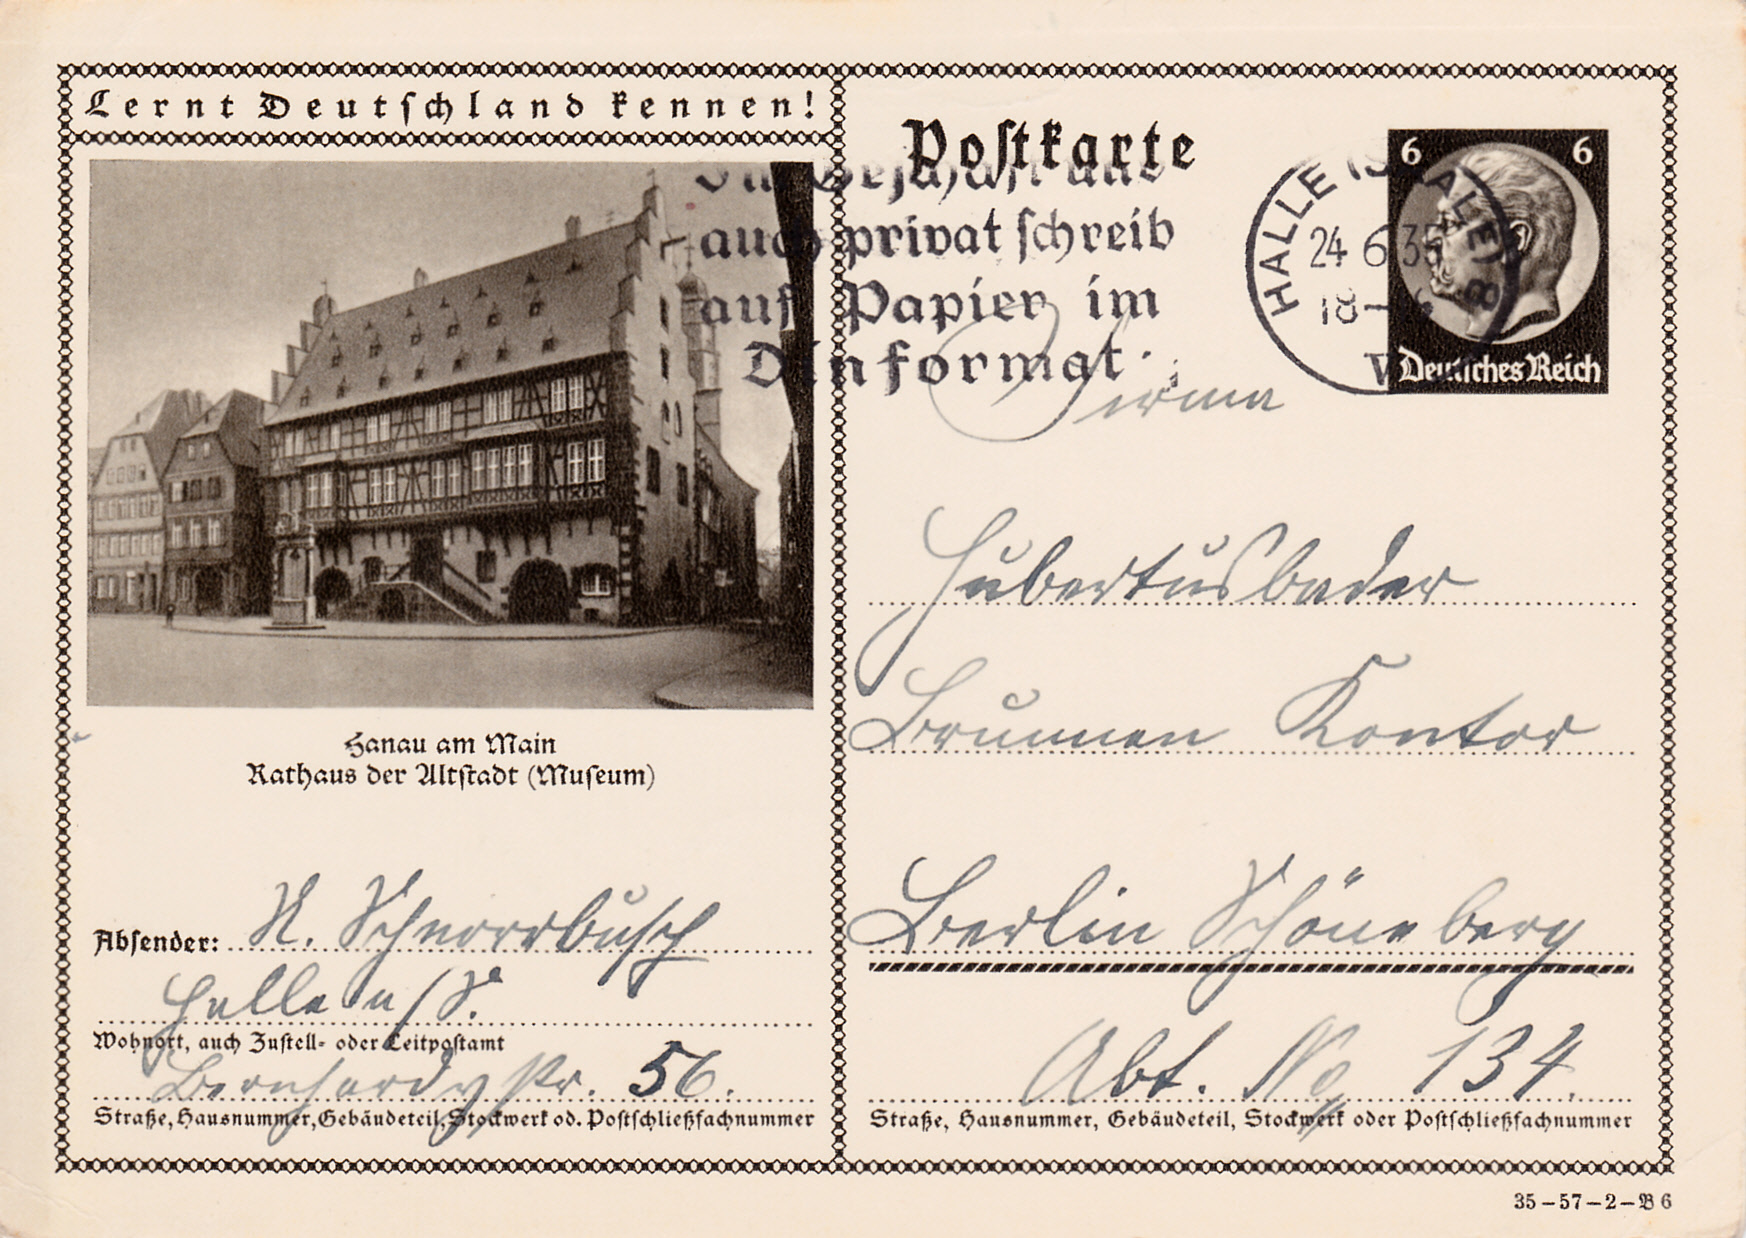 Lernt Deutschland kennen!
Postkarte
Im Geschäft und
auch privat schreib
auf Papier im
Dinformat.
HALLE (SAALE)
24 6 35
18-
8
V
6 6
Deutsches Reich
Hanau am Main
Rathaus der Altstadt (Museum)
Firma
Hubertusbader
Brunnen Kontor
Berlin Schöneberg
Abt. No 134.
Straße, Hausnummer, Gebäudeteil, Stockwerk oder Postschließfachnummer
Absender: R. Schnorrbusch
Halle a/S.
Wohnort, auch Zustell- oder Leitpostamt
Bernhardystr. 56.
Straße, Hausnummer, Gebäudeteil, Stockwerk od. Postschließfachnummer
35-57-2-B 6